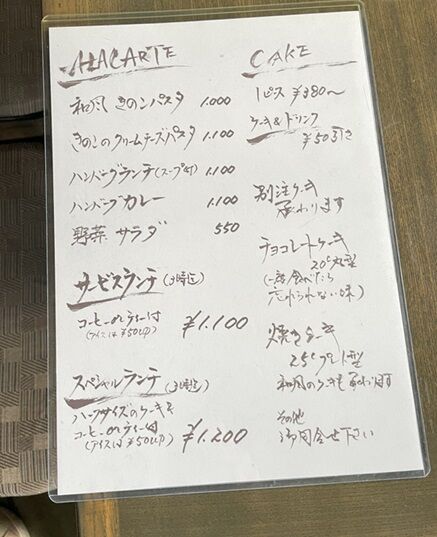 ALACARTE
和風きのこパスタ 1.000
きのこのクリームチーズパスタ 1.100
ハンバーグランチ(スープ付) 1.100
ハンバーグカレー 1.100
野菜サラダ 550
サービスランチ(3時迄)
コーヒーorティー付
(アイスは¥50UP) ¥1.100
スペシャルランチ(3時迄)
ハーフサイズのケーキと
コーヒーorティー付
(アイスは¥50UP) ¥1.200
CAKE
1ピース ¥380〜
ケーキ&ドリンク
¥50引き
別注ケーキ
承わります
チョコレートケーキ
20c丸型
(一度食べたら
忘れられない味)
焼きケーキ
25c
和風のケーキも承わります
その他
御問合せ下さい